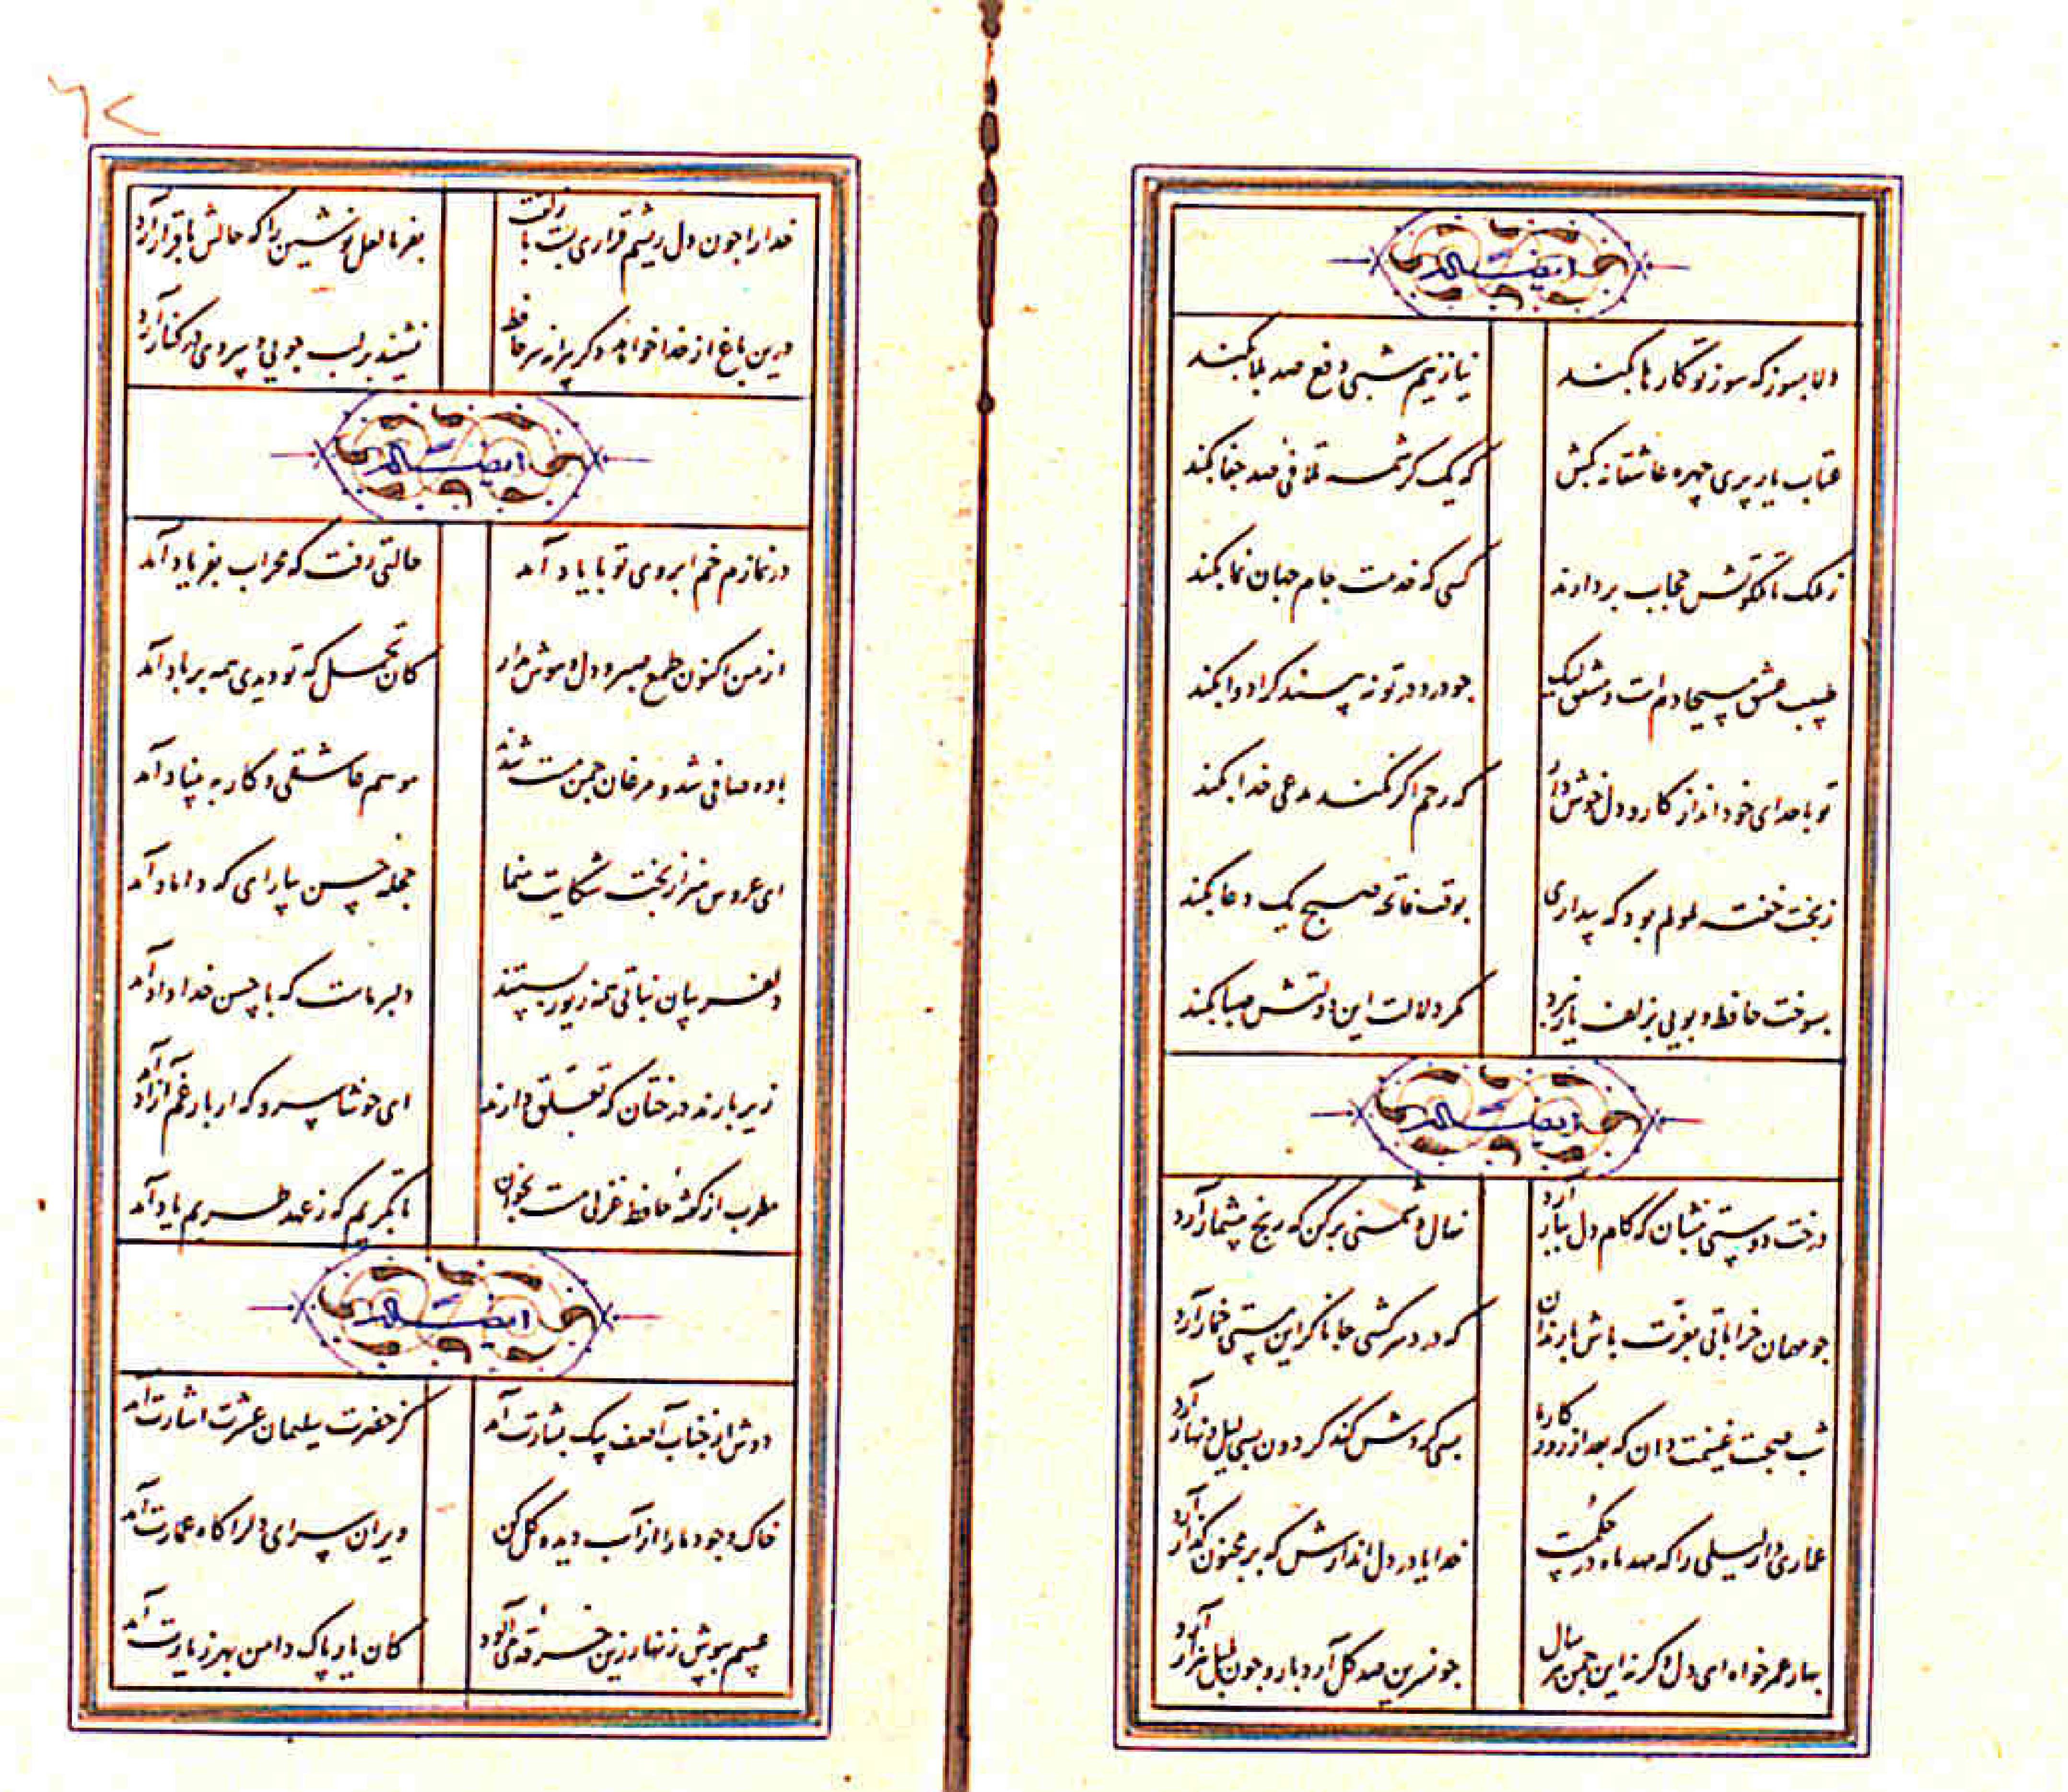 ایضاً له
دلا بسوز که سوز تو کارها بکند
نیاز نیم شبی دفع صد بلا بکند
عتاب یار پری چهره عاشقانه بکش
که یک کرشمه تلافی صد جفا بکند
ز ملک تا ملکوتش حجاب بردارند
کسی که خدمت جام جهان نما بکند
طبیب عشق مسیحا دم است و مشفق لیک
جو درد در تو نه بیند کرا دوا بکند
تو با خدای خود انداز کار و دل خوش دار
که رحم اکر نکند مدعی خدا بکند
ز بخت خفته ملولم بود که بیداری
بوقت فاتحه صبح یک دعا بکند
بسوخت حافظ و بویی بزلف یار نبرد
مکر دلالت این دولتش صبا بکند
ایضاً له
درخت دوستی بنشان که کام دل ببار آرد
نهال دشمنی برکن که رنج بیشمار آرد
جو مهمان خراباتی بعزت باش با رندان
که درد سر کشی جانا کر این مستی خمار آرد
شب صحبت غنیمت دان که بعد از روزکار ما
بسی کردش کند کردون بسی لیل و نهار آرد
عماری دار لیلی را که مهد ماه در حکمست
خدایا در دل اندازش که بر مجنون کذار آرد
بهار عمر خواه ای دل وکرنه این جمن هر سال
جو نسرین صد کل آرد بار و جون بلبل هزار آرد
۶۷
خدا را جون دل ریشم قراری بست با زلفت
بفرما لعل نوشین را که حالش با قرار آرد
درین باغ از خدا خواهد دکر پیرانه سر حافظ
نشیند بر لب جویی و سروی در کنار آرد
ایضاً له
در نمازم خم ابروی تو با یاد آمد
حالتی رفت که محراب بفریاد آمد
از من اکنون طمع صبر و دل و هوش مدار
کان تحمل که تو دیدی همه بر باد آمد
باده صافی شد و مرغان جمن مست شدند
موسم عاشقی و کار به بنیاد آمد
ای عروس هنر از بخت شکایت منما
حجله حسن بیارای که داماد آمد
دلفریبان نباتی همه زیور بستند
دلبر ماست که با حسن خداداد آمد
زیر بارند درختان که تعلق دارند
ای خوشا سرو که از بار غم آزاد آمد
مطرب از کفته حافظ غزلی مست بخوان
تا بکریم که ز عهد طربم یاد آمد
ایضاً له
دوش از جناب آصف پیک بشارت آمد
کز حضرت سلیمان عشرت اشارت آمد
خاک وجود ما را از آب دیده کل کن
ویران سرای دل را کاه عمارت آمد
عیبم بپوش زنهار زین خرقه می آلود
کان یار پاک دامن بهر زیارت آمد